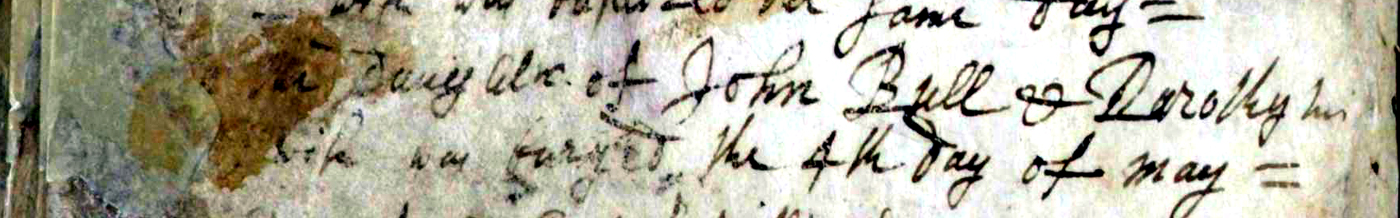 wife was baptized the same day =
the Daughter of John Bull & Dorothy his
wife was buryed the 4th day of may =